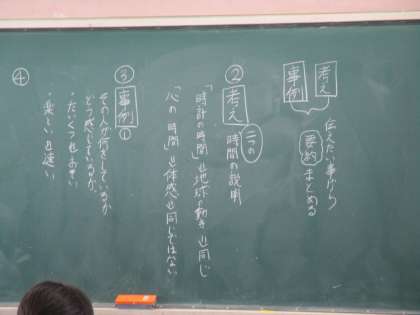 考え
事例
伝えたい事がら
要約 まとめる
② 考え 二つの
時間の説明
「時計の時間」⇒地球の動き⇒同じ
「心の時間」⇒体感⇒同じではない
③ 事例①
その人が何をしているか
どう感じているか。
・たいくつ⇒おそい
・楽しい⇒速い
④